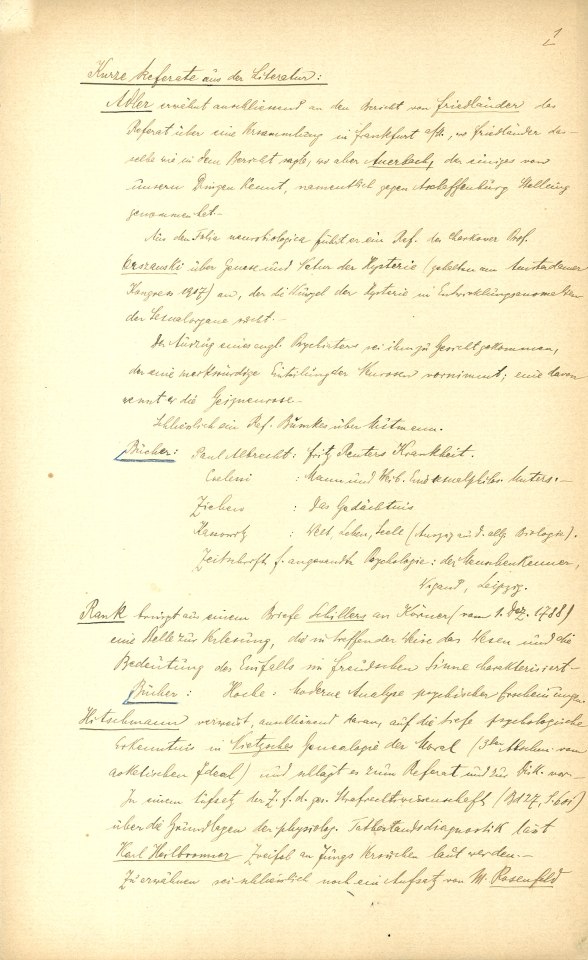 1
Kurze Referate aus der Literatur:
Adler erwähnt anschliessend an den Bericht von Friedländer das
Referat über eine Versammlung in Frankfurt a/M, wo Friedländer das-
selbe wie in dem Bericht sagte, wo aber Auerbach, der einiges von
unsern Dingen kennt, namentlich gegen Aschaffenburg Stellung
genommen hat.-
Aus der Folia neurobiologica führt er ein Ref. des Charkower Prof.
über Genese und Natur der Hysterie (gehalten am Amsterdamer
Kongress 1907) an, der die Wurzel der Hysterie in Entwicklungsanomalien
der Sexualorgane sucht.-
Der Auszug eines engl. Psychiaters sei ihm zu Gesicht gekommen,
der eine merkwürdige Einteilung der Neurosen vornimmt; eine davon
nennt er die
Schliesslich ein Ref. Bumkes über
Bücher: Paul Albrecht: Fritz Reuters Krankheit.
: Mann und Weib. Unters.-
Ziehen : Das Gedächtnis
: Welt, Leben, Seele (Auszug aus d. allg. Biologie).
Zeitschrift f. angewandte Psychologie: der Menschenkenner,
Wigand, Leipzig.
Rank bringt aus einem Briefe Schillers an Körner (vom 1. Dez. 1788)
eine Stelle zur Verlesung, die in treffender Weise das Wesen und die
Bedeutung des Einfalls im Freudschen Sinne charakterisiert-
Bücher: Hoche: Moderne Analyse psychischer Erscheinungen.
Hitschmann verweist, anschliessend daran, auf die tiefe psychologische
Erkenntnis in Nietzsches Genealogie der Moral (3ter Abschn. vom
asketischen Ideal) und schlägt es zum Referat und zur Disk. vor.
In einem Aufsatz der Z. f. d. ges. Strafrechtswissenschaft (Bd 27, S. 601)
über die Grundlagen der physiolog. Tatbestandsdiagnostik lässt
Karl Heilbronner Zweifel an Jungs Versuchen laut werden.-
Zu erwähnen sei schliesslich noch ein Aufsatz von M. Rosenfeld